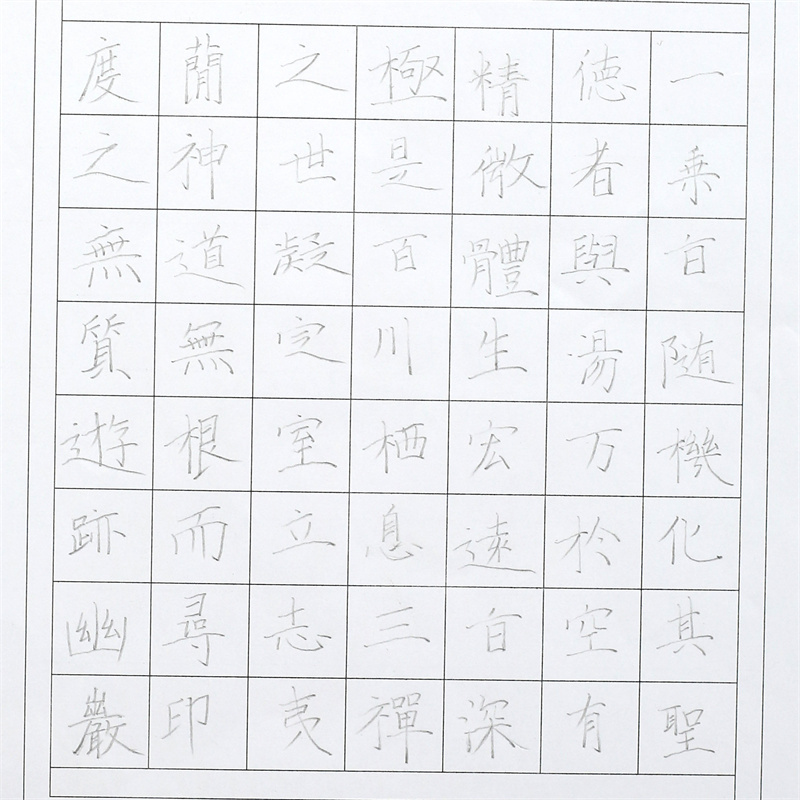 一乗百随機化其聖
德者與湯万於空有
精微體生宏遠百深
極是百川栖息三禪
之世凝定室立志夷
蕳神道無根而尋印
度之無質遊跡幽巖